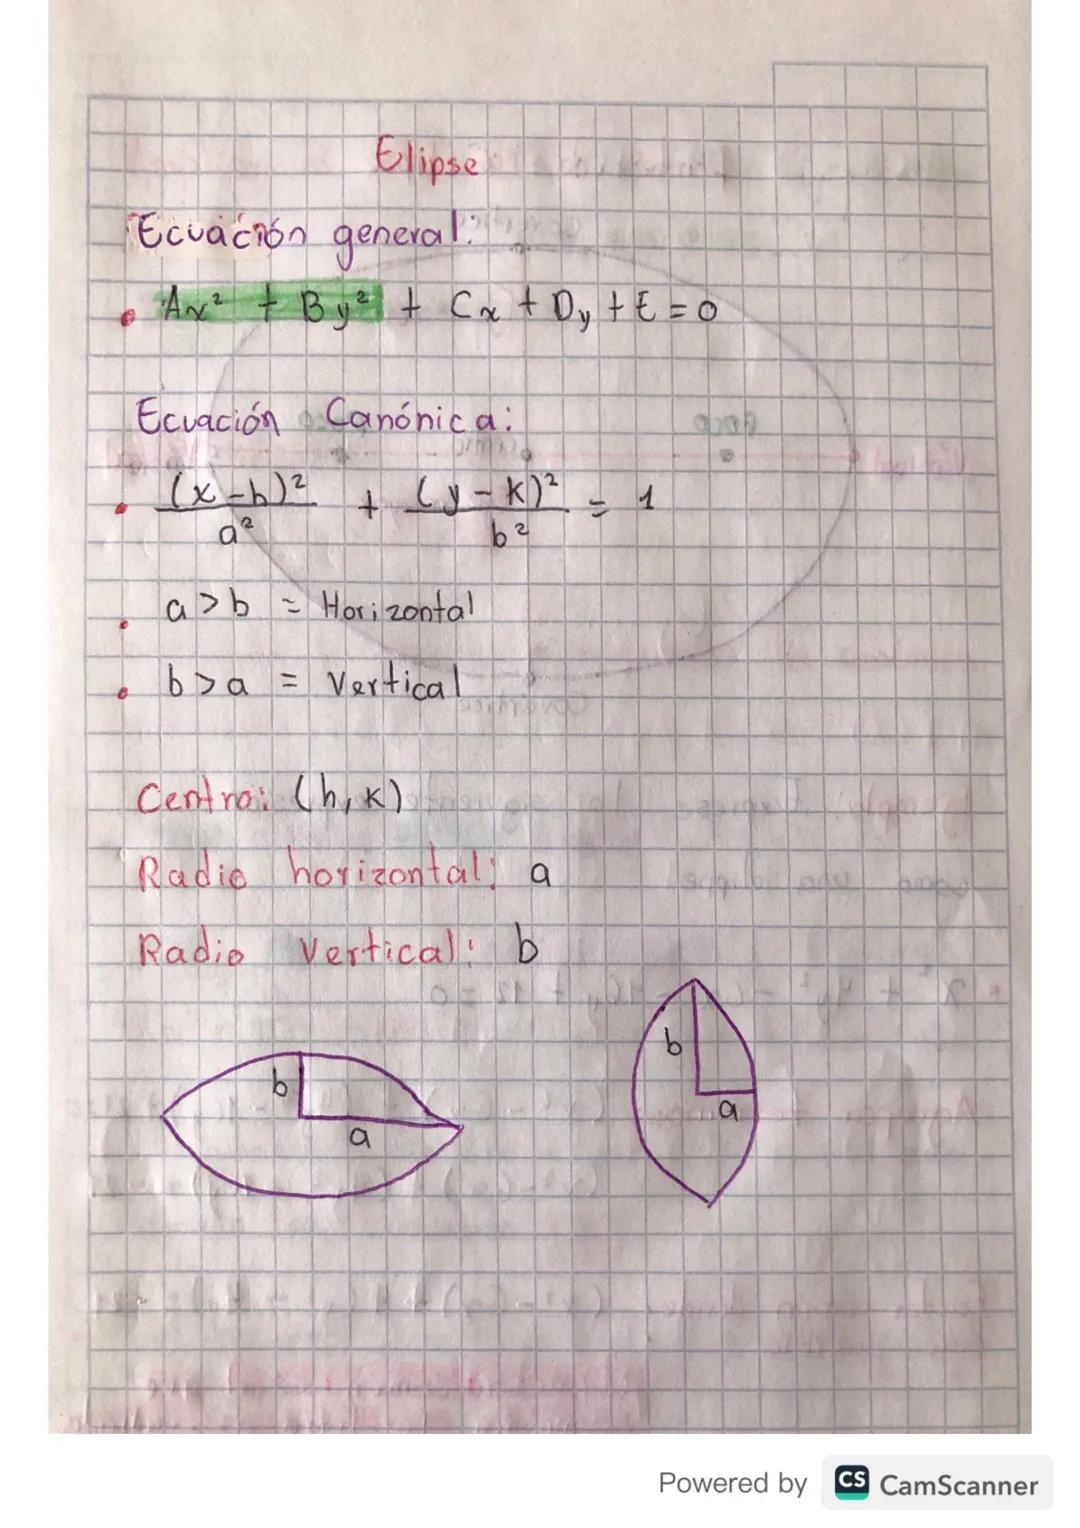 Elipse
Ecuación general:
• Ax² + By² + Cx + Dy + E = 0
Ecuación Canónica:
• (x-h)²/a² + (y-k)²/b² = 1
• a>b = Horizontal
• b>a = Vertical
Centro: (h,k)
Radio horizontal: a
Radio Vertical: b
b a
b a
Powered by CS CamScanner